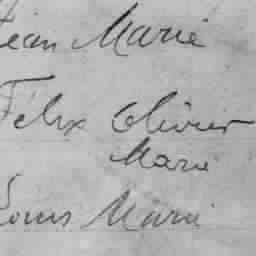 Jean Marie
Félix Olivier
Marie
Louis Marie